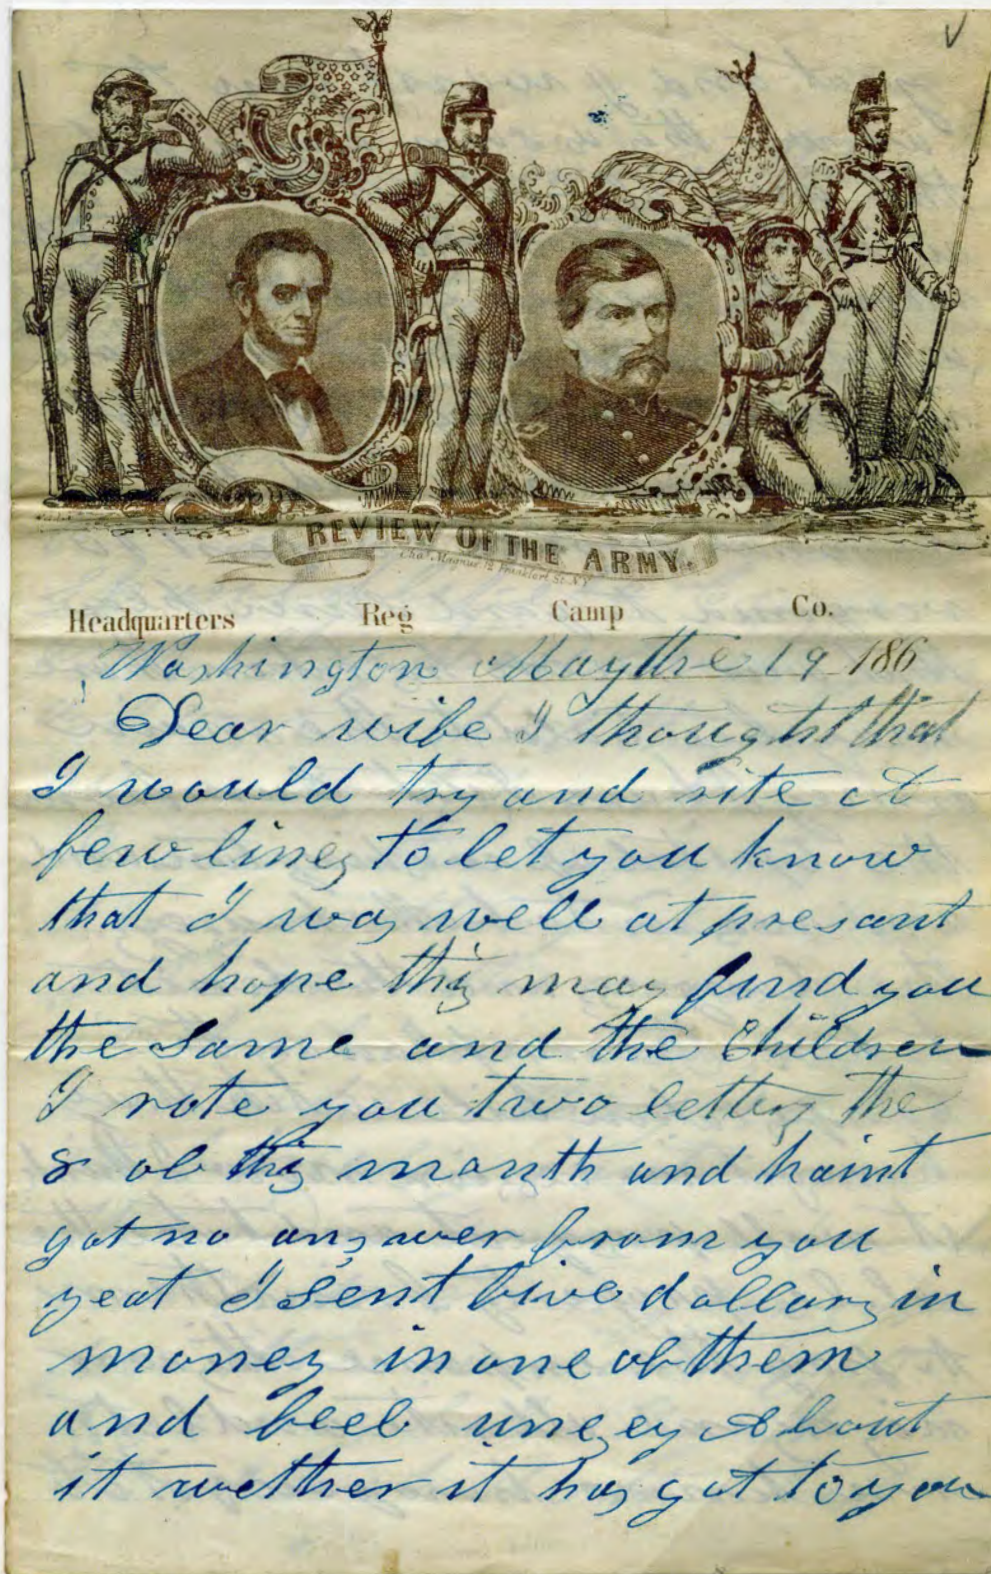 REVIEW OF THE ARMY.
Chas. Magnus, 12 Frankfort St. N.Y.
Headquarters Reg Camp Co.
Washington May the 19 186
Dear wife I thought that
I would try and rite a
few lines to let you know
that I was well at presant
and hope this may find you
the same and the Children
I rote you two letters the
8 of this month and haint
got no answer from you
yeat I sent five dollars in
money in one of them
and feel unesey About
it wether it has got to you